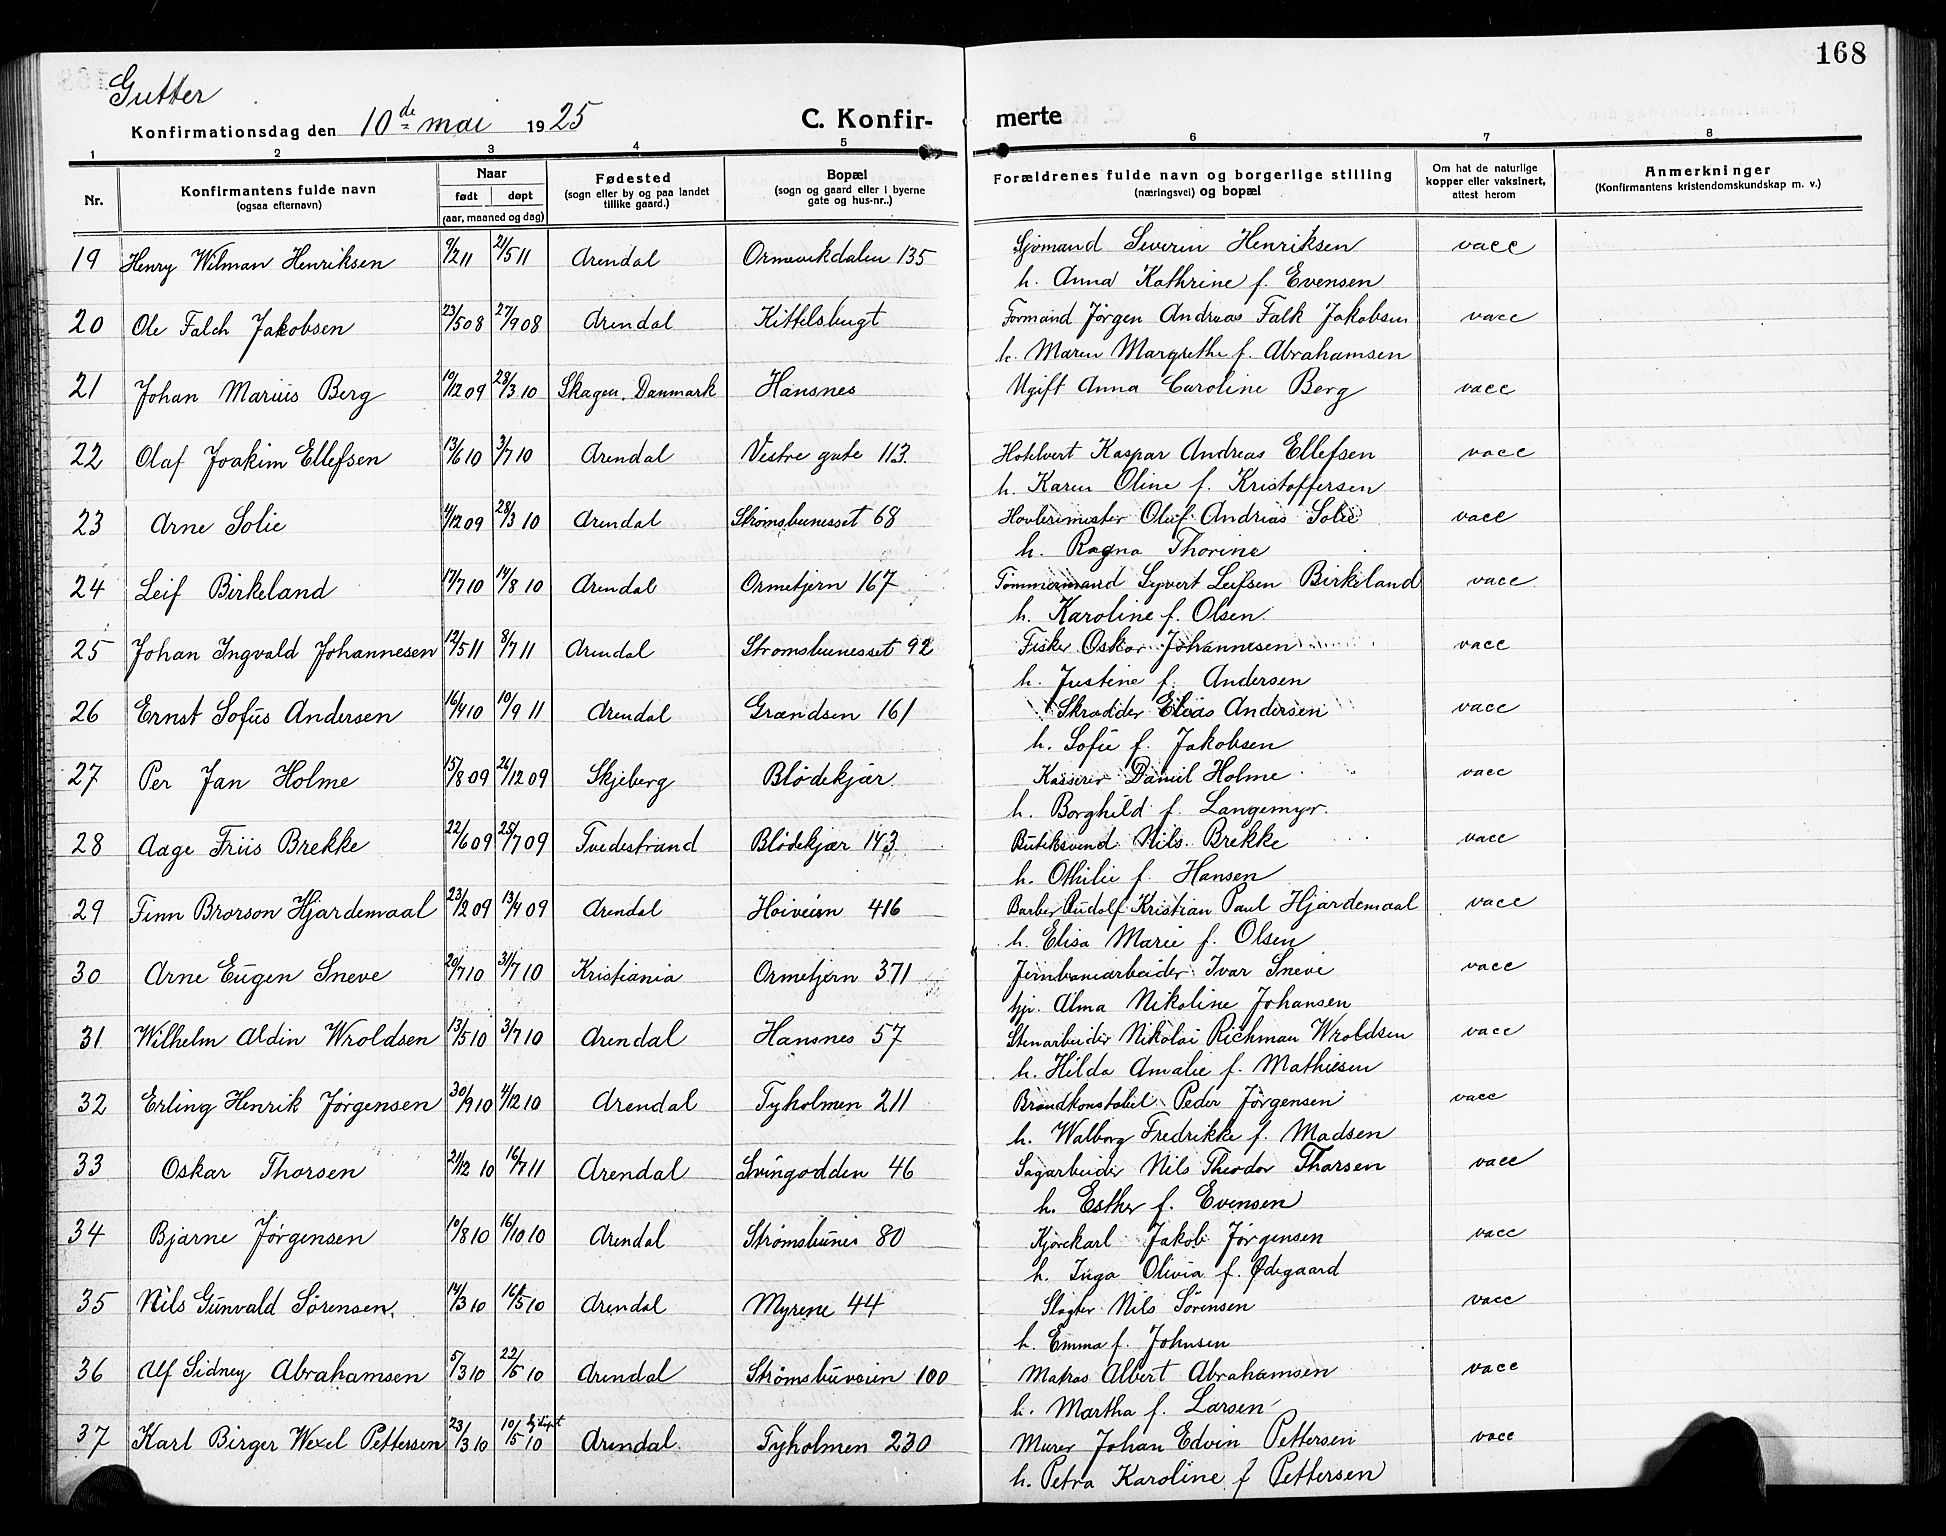 168
Gutter
Konfirmationsdag den 10de mai 1925 C. Konfir- merte
1 2 3 4 5 6 7 8
Nr. Konfirmantens fulde navn (ogsaa efternavn) Naar født døpt (aar, maaned og dag) Fødested (sogn eller by og paa landet tillike gaard.) Bopæl (sogn og gaard eller i byerne gate og hus-nr..) Forældrenes fulde navn og borgerlige stilling (næringsvei) og bopæl Om hat de naturlige kopper eller vaksinert, attest herom Anmerkninger (Konfirmantens kristendomskundskap m. v.)
19 Henry Wilman Henriksen 9/2 11 21/5 11 Arendal Ormevikdalen 135 Sjømand Severin Henriksen vacc
h. Anna Kathrine f. Evensen
20 Ole Falch Jakobsen 23/5 08 27/9 08 Arendal Kittelsbugt Formand Jørgen Andreas Falk Jakobsen vacc
h. Maren Margrethe f. Abrahamsen
21 Johan Marius Berg 10/12 09 28/3 10 Skagen. Danmark Hansnes Ugift Anna Caroline Berg vacc
22 Olaf Joakim Ellefsen 13/6 10 3/7 10 Arendal Vestre gate 113. Hotelvert Kaspar Andreas Ellefsen vacc
h. Karen Oline f. Kristoffersen
23 Arne Solie 4/12 09 28/3 10 Arendal Strømsbunesset 68 Høvlerimester Oluf Andreas Solie vacc
h. Ragna Thorine
24 Leif Birkeland 17/7 10 14/8 10 Arendal Ormetjern 167 Tømmermand Syvert Leifsen Birkeland vacc
h. Karoline f. Olsen.
25 Johan Ingvald Johannesen 12/5 11 8/7 11 Arendal Strømsbunesset 92 Fisker Oskar Johannesen vacc
h. Justine f. Andersen
26 Ernst Sofus Andersen 16/4 10 10/9 11 Arendal Grændsen 161 Skrædder Elias Andersen vacc
h. Sofie f. Jakobsen
27 Per Jan Holme 15/8 09 26/12 09 Skjeberg Blødekjær. Kasserer Daniel Holme vacc
h. Borghild f. Langemyr.
28 Aage Friis Brekke 22/6 09 25/7 09 Tvedestrand Blødekjær 143 Butiksvend Nils Brekke vacc
h. Othilie f. Hansen
29 Finn Brorson Hjardemaal 23/2 09 13/4 09 Arendal Høiveien 416 Barber Rudolf Kristian Paul Hjardemaal vacc
h. Elisa Marie f. Olsen
30 Arne Eugen Sneve 20/7 10 31/7 10 Kristiania Ormetjern 371 Jernbanearbeider Ivar Sneve vacc
hj. Alma Nikoline Johansen
31 Wilhelm Aldin Wroldsen 13/5 10 3/7 10 Arendal Hansnes 57 Stenarbeider Nikolai Richman Wroldsen vacc
h. Hilda Amalie f. Mathiesen
32 Erling Henrik Jørgensen 30/9 10 4/12 10 Arendal Tyholmen 211 Brandkonstabel Peder Jørgensen vacc
h. Walborg Fredrikke f. Madsen
33 Oskar Thorsen 21/12 10 16/7 11 Arendal Svingodden 46 Sagarbeider Nils Theodor Thorsen vacc
h. Esther f. Evensen
34 Bjarne Jørgensen 10/8 10 16/10 10 Arendal Strømsbunes 80 Kjørekarl Jakob Jørgensen vacc
h. Inga Olivia f. Ødegaard
35 Nils Gunvald Sørensen. 14/3 10 16/5 10 Arendal Myrene 44 Slagter Nils Sørensen vacc
h. Emma f. Johnsen
36 Alf Sidney Abrahamsen 5/3 10 22/5 10 Arendal Strømsbuveien 100 Matros Albert Abrahamsen vacc
h. Martha f. Larsen
37 Karl Birger Wexel Pettersen 23/3 10 10/5 10 Arendal. Tyholmen 230 Murer Johan Edvin Pettersen vacc
h. Petra Karoline f Pettersen